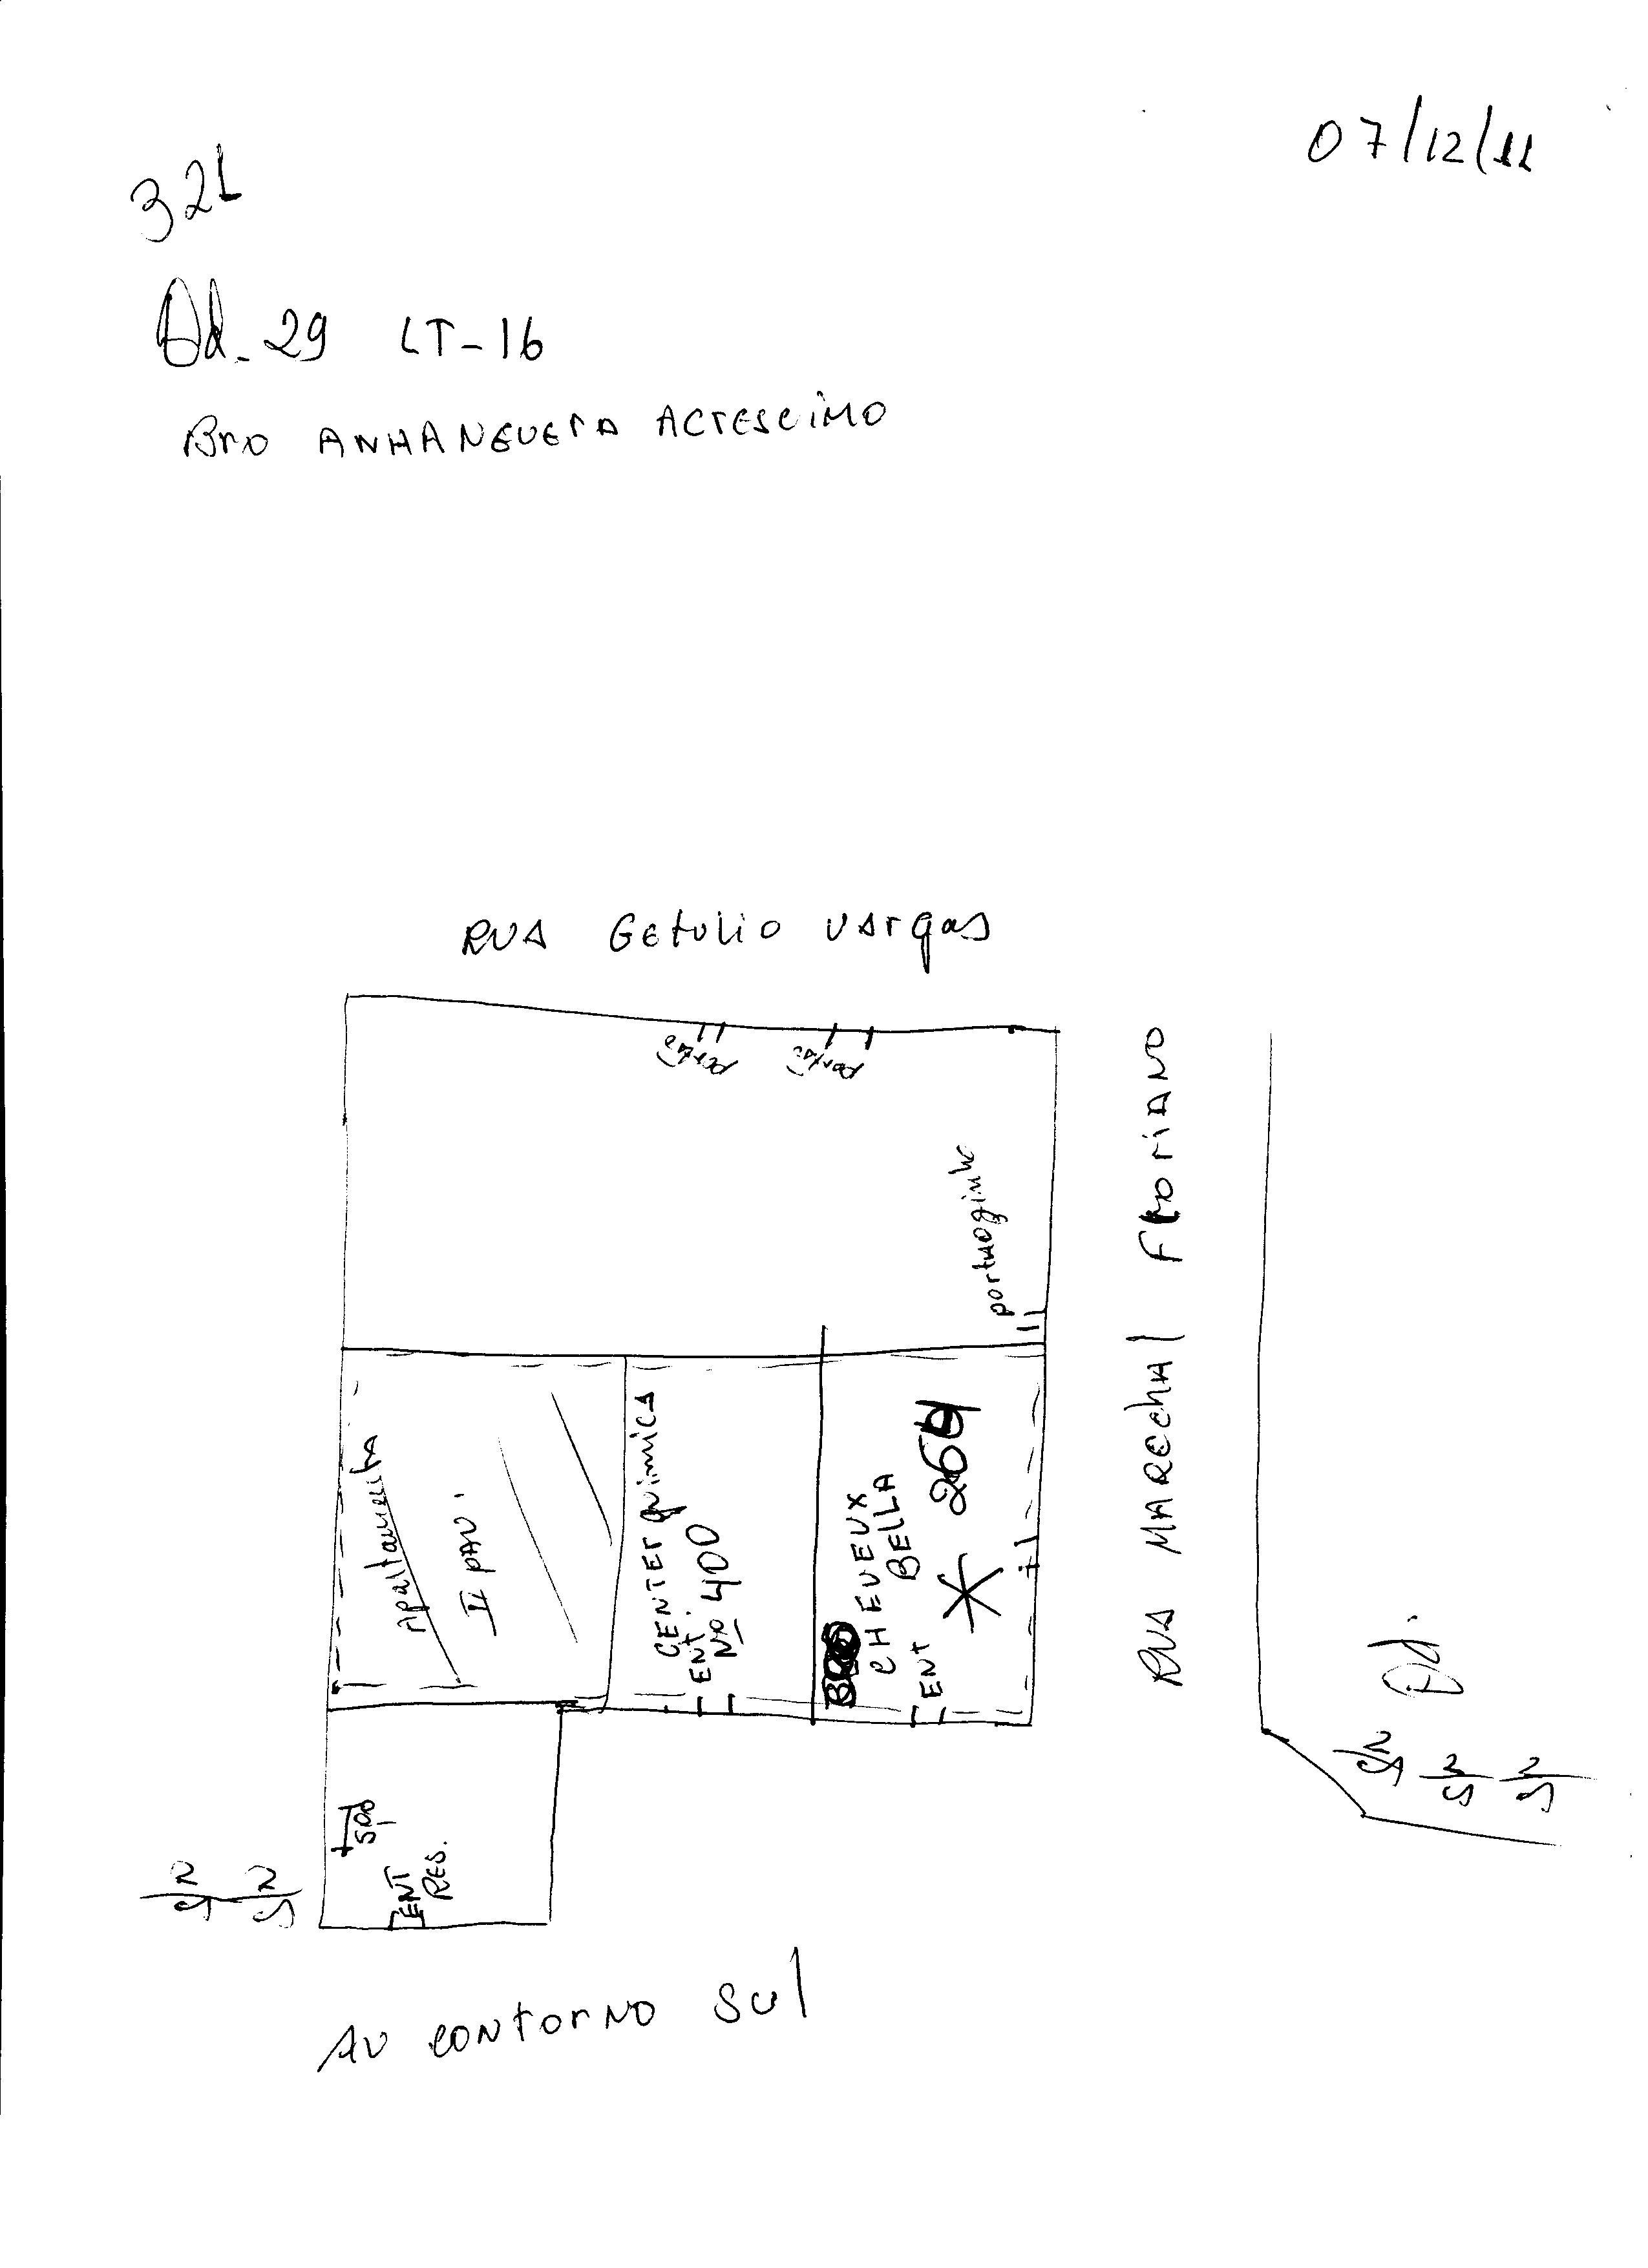 07/12/11
321
Qd. 29 LT-16
Bro ANHANGUERA ACRESCIMO
RUA Getulio Vargas
portão portão
portuoginho
RUA MARECHAL FLORIANO
Apartamento
II PAV.
CENTER quimica
ENT.
Nº 400
CHEVEUX
BELLA
ENT
264
Qd.
S/N S/N S/N
500
ENT
RES.
S/N S/N
AV CONTORNO SUL